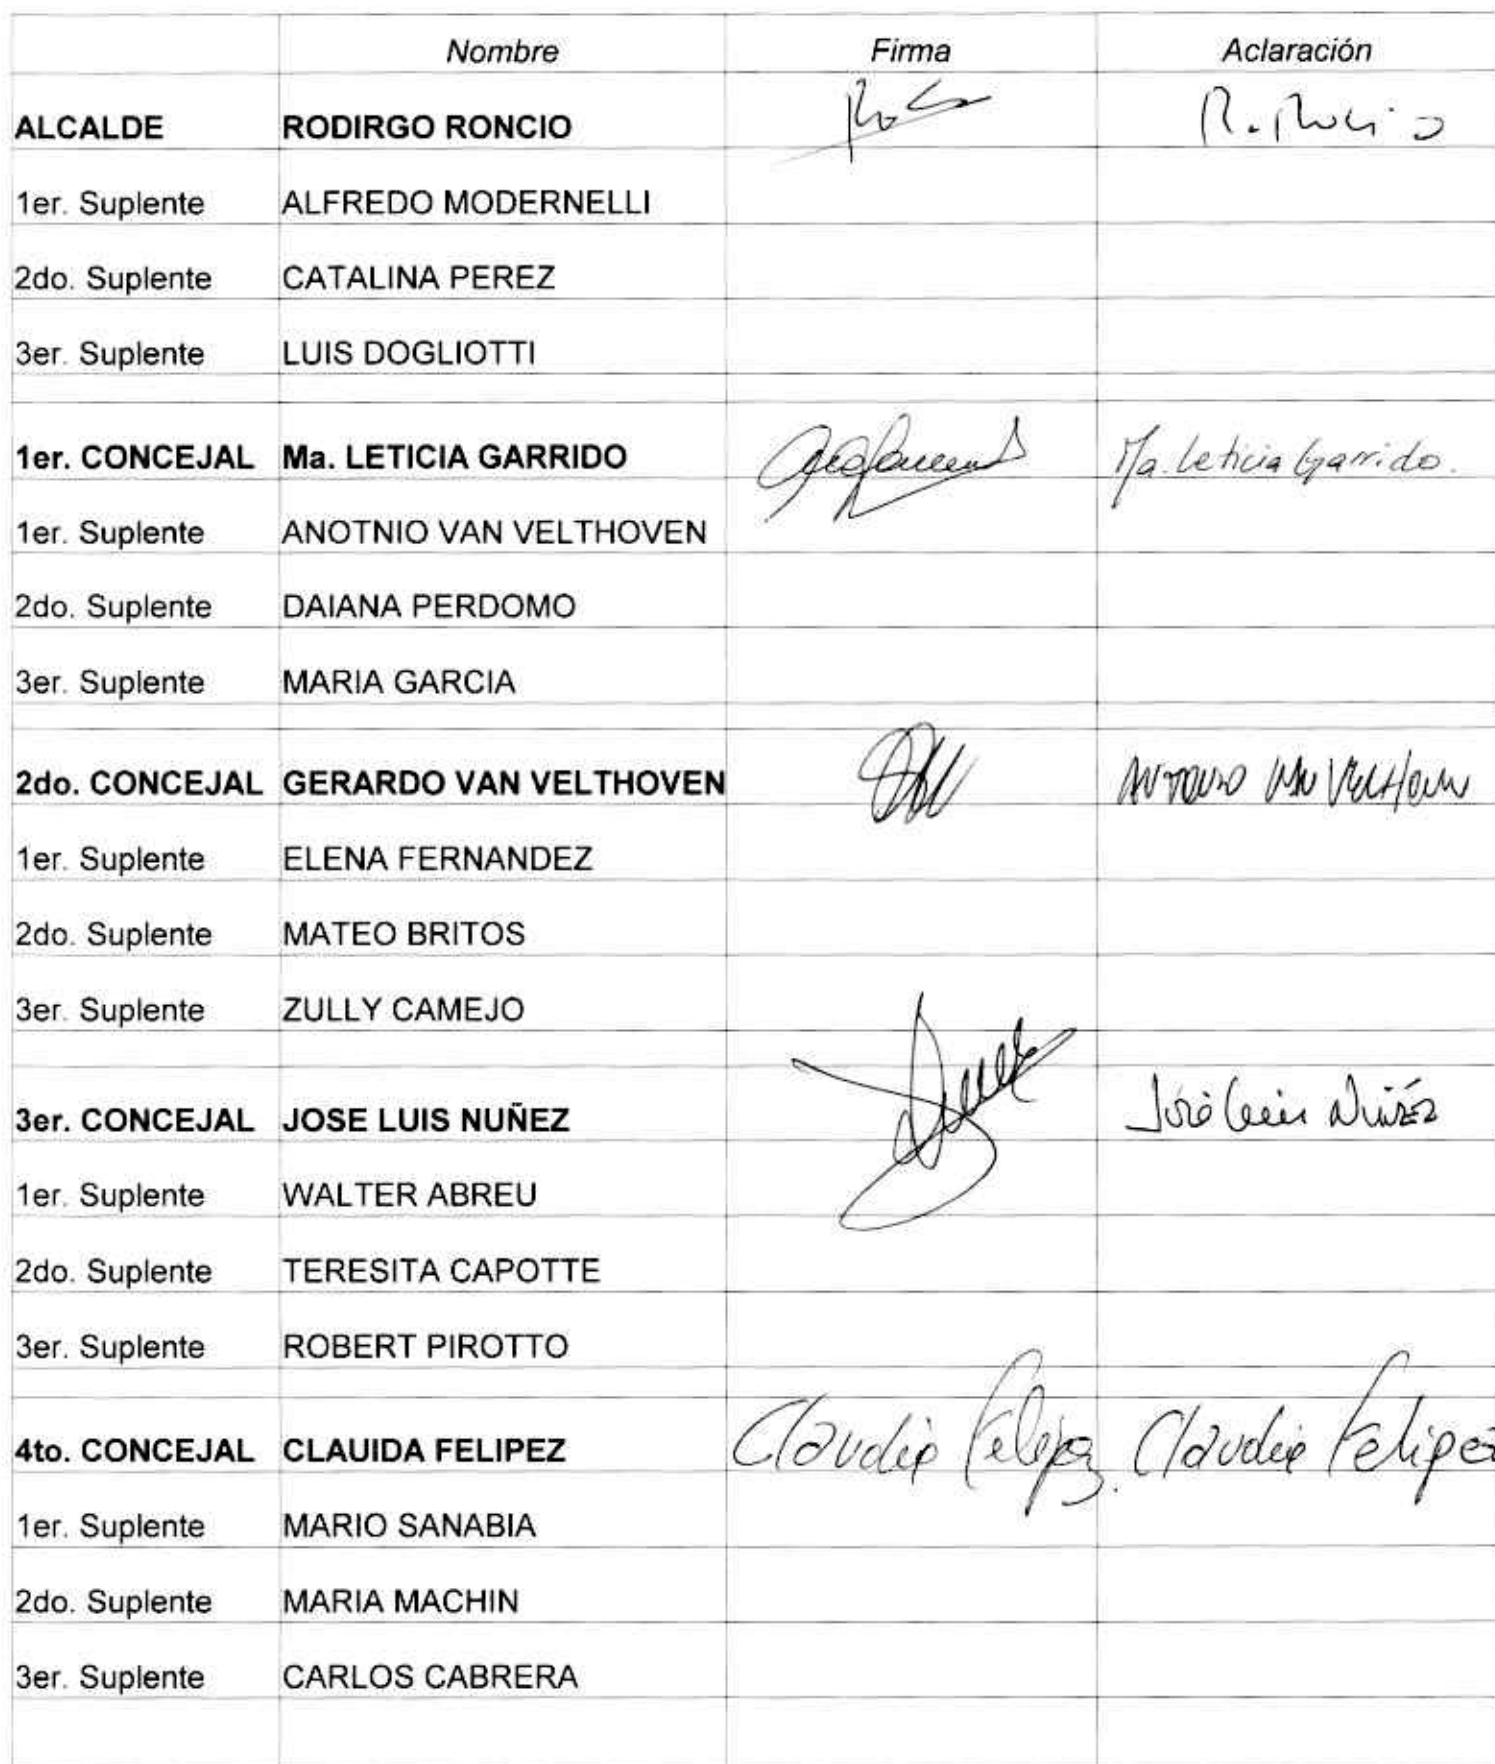 Nombre Firma Aclaración
ALCALDE RODIRGO RONCIO R. Roncio
1er. Suplente ALFREDO MODERNELLI
2do. Suplente CATALINA PEREZ
3er. Suplente LUIS DOGLIOTTI
1er. CONCEJAL Ma. LETICIA GARRIDO Ma. Leticia Garrido.
1er. Suplente ANOTNIO VAN VELTHOVEN
2do. Suplente DAIANA PERDOMO
3er. Suplente MARIA GARCIA
2do. CONCEJAL GERARDO VAN VELTHOVEN ANTONIO VAN VELTHOVEN
1er. Suplente ELENA FERNANDEZ
2do. Suplente MATEO BRITOS
3er. Suplente ZULLY CAMEJO
3er. CONCEJAL JOSE LUIS NUÑEZ José Luis Núñez
1er. Suplente WALTER ABREU
2do. Suplente TERESITA CAPOTTE
3er. Suplente ROBERT PIROTTO
4to. CONCEJAL CLAUIDA FELIPEZ Claudia Felipez. Claudia Felipez
1er. Suplente MARIO SANABIA
2do. Suplente MARIA MACHIN
3er. Suplente CARLOS CABRERA